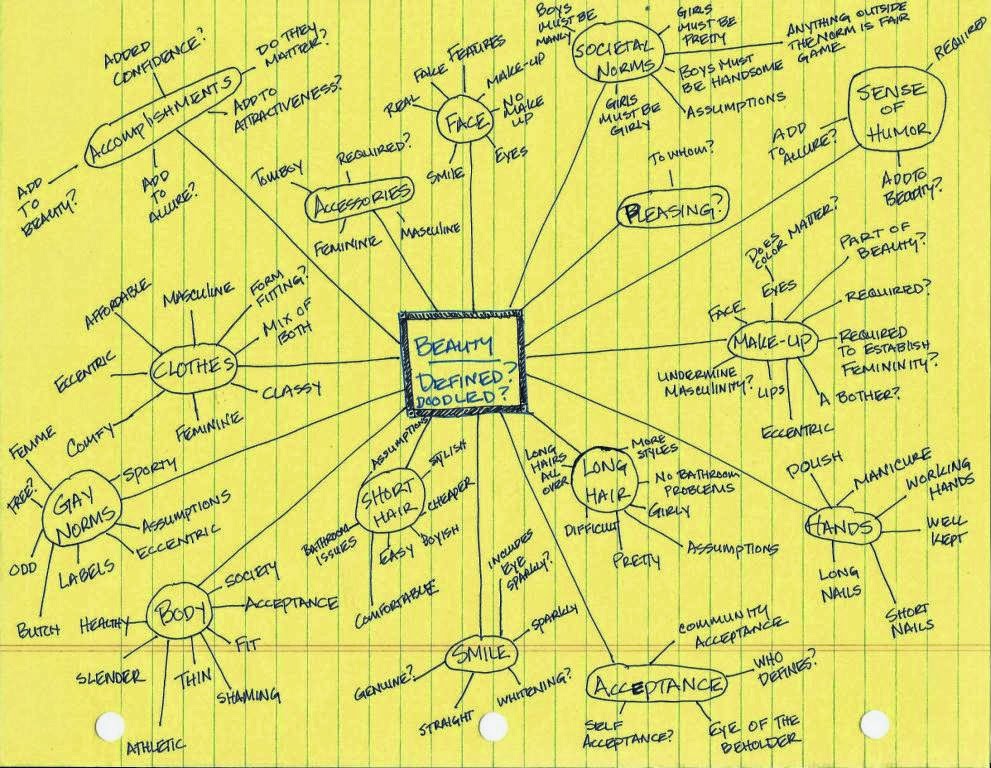 BEAUTY
DEFINED?
DOODLED?
ACCOMPLISHMENTS
ADDED
CONFIDENCE?
DO THEY
MATTER?
ADD TO
ATTRACTIVENESS?
ADD
TO
ALLURE?
ADD
TO
BEAUTY?
ACCESSORIES
TOMBOY
REQUIRED?
FEMININE
MASCULINE
FACE
FAKE FEATURES
REAL
MAKE-UP
NO
MAKE
UP
EYES
SMILE
SOCIETAL
NORMS
BOYS
MUST BE
MANLY
GIRLS
MUST BE
PRETTY
ANYTHING OUTSIDE
THE NORM IS FAIR
GAME
BOYS MUST
BE HANDSOME
ASSUMPTIONS
GIRLS
MUST BE
GIRLY
PLEASING?
TO WHOM?
SENSE
OF
HUMOR
REQUIRED
ADD
TO
ALLURE?
ADD TO
BEAUTY?
MAKE-UP
FACE
EYES
DOES
COLOR MATTER?
PART OF
BEAUTY?
REQUIRED?
REQUIRED
TO ESTABLISH
FEMININITY?
A BOTHER?
ECCENTRIC
LIPS
UNDERMINE
MASCULINITY?
HANDS
POLISH
MANICURE
WORKING
HANDS
WELL
KEPT
SHORT
NAILS
LONG
NAILS
LONG
HAIR
LONG
HAIRS
ALL
OVER
MORE
STYLES
NO BATHROOM
PROBLEMS
GIRLY
ASSUMPTIONS
PRETTY
DIFFICULT
ACCEPTANCE
COMMUNITY
ACCEPTANCE
WHO
DEFINES?
EYE OF THE
BEHOLDER
SELF
ACCEPTANCE?
SMILE
INCLUDES
EYE
SPARKLY?
SPARKLY
WHITENING?
STRAIGHT
GENUINE?
SHORT
HAIR
ASSUMPTIONS
STYLISH
CHEAPER
BOYISH
EASY
COMFORTABLE
BATHROOM
ISSUES
BODY
SOCIETY
ACCEPTANCE
FIT
SHAMING
THIN
ATHLETIC
SLENDER
HEALTHY
GAY
NORMS
FEMME
SPORTY
ASSUMPTIONS
ECCENTRIC
LABELS
BUTCH
ODD
FREE?
CLOTHES
AFFORDABLE
MASCULINE
FORM
FITTING?
MIX OF
BOTH
CLASSY
FEMININE
COMFY
ECCENTRIC